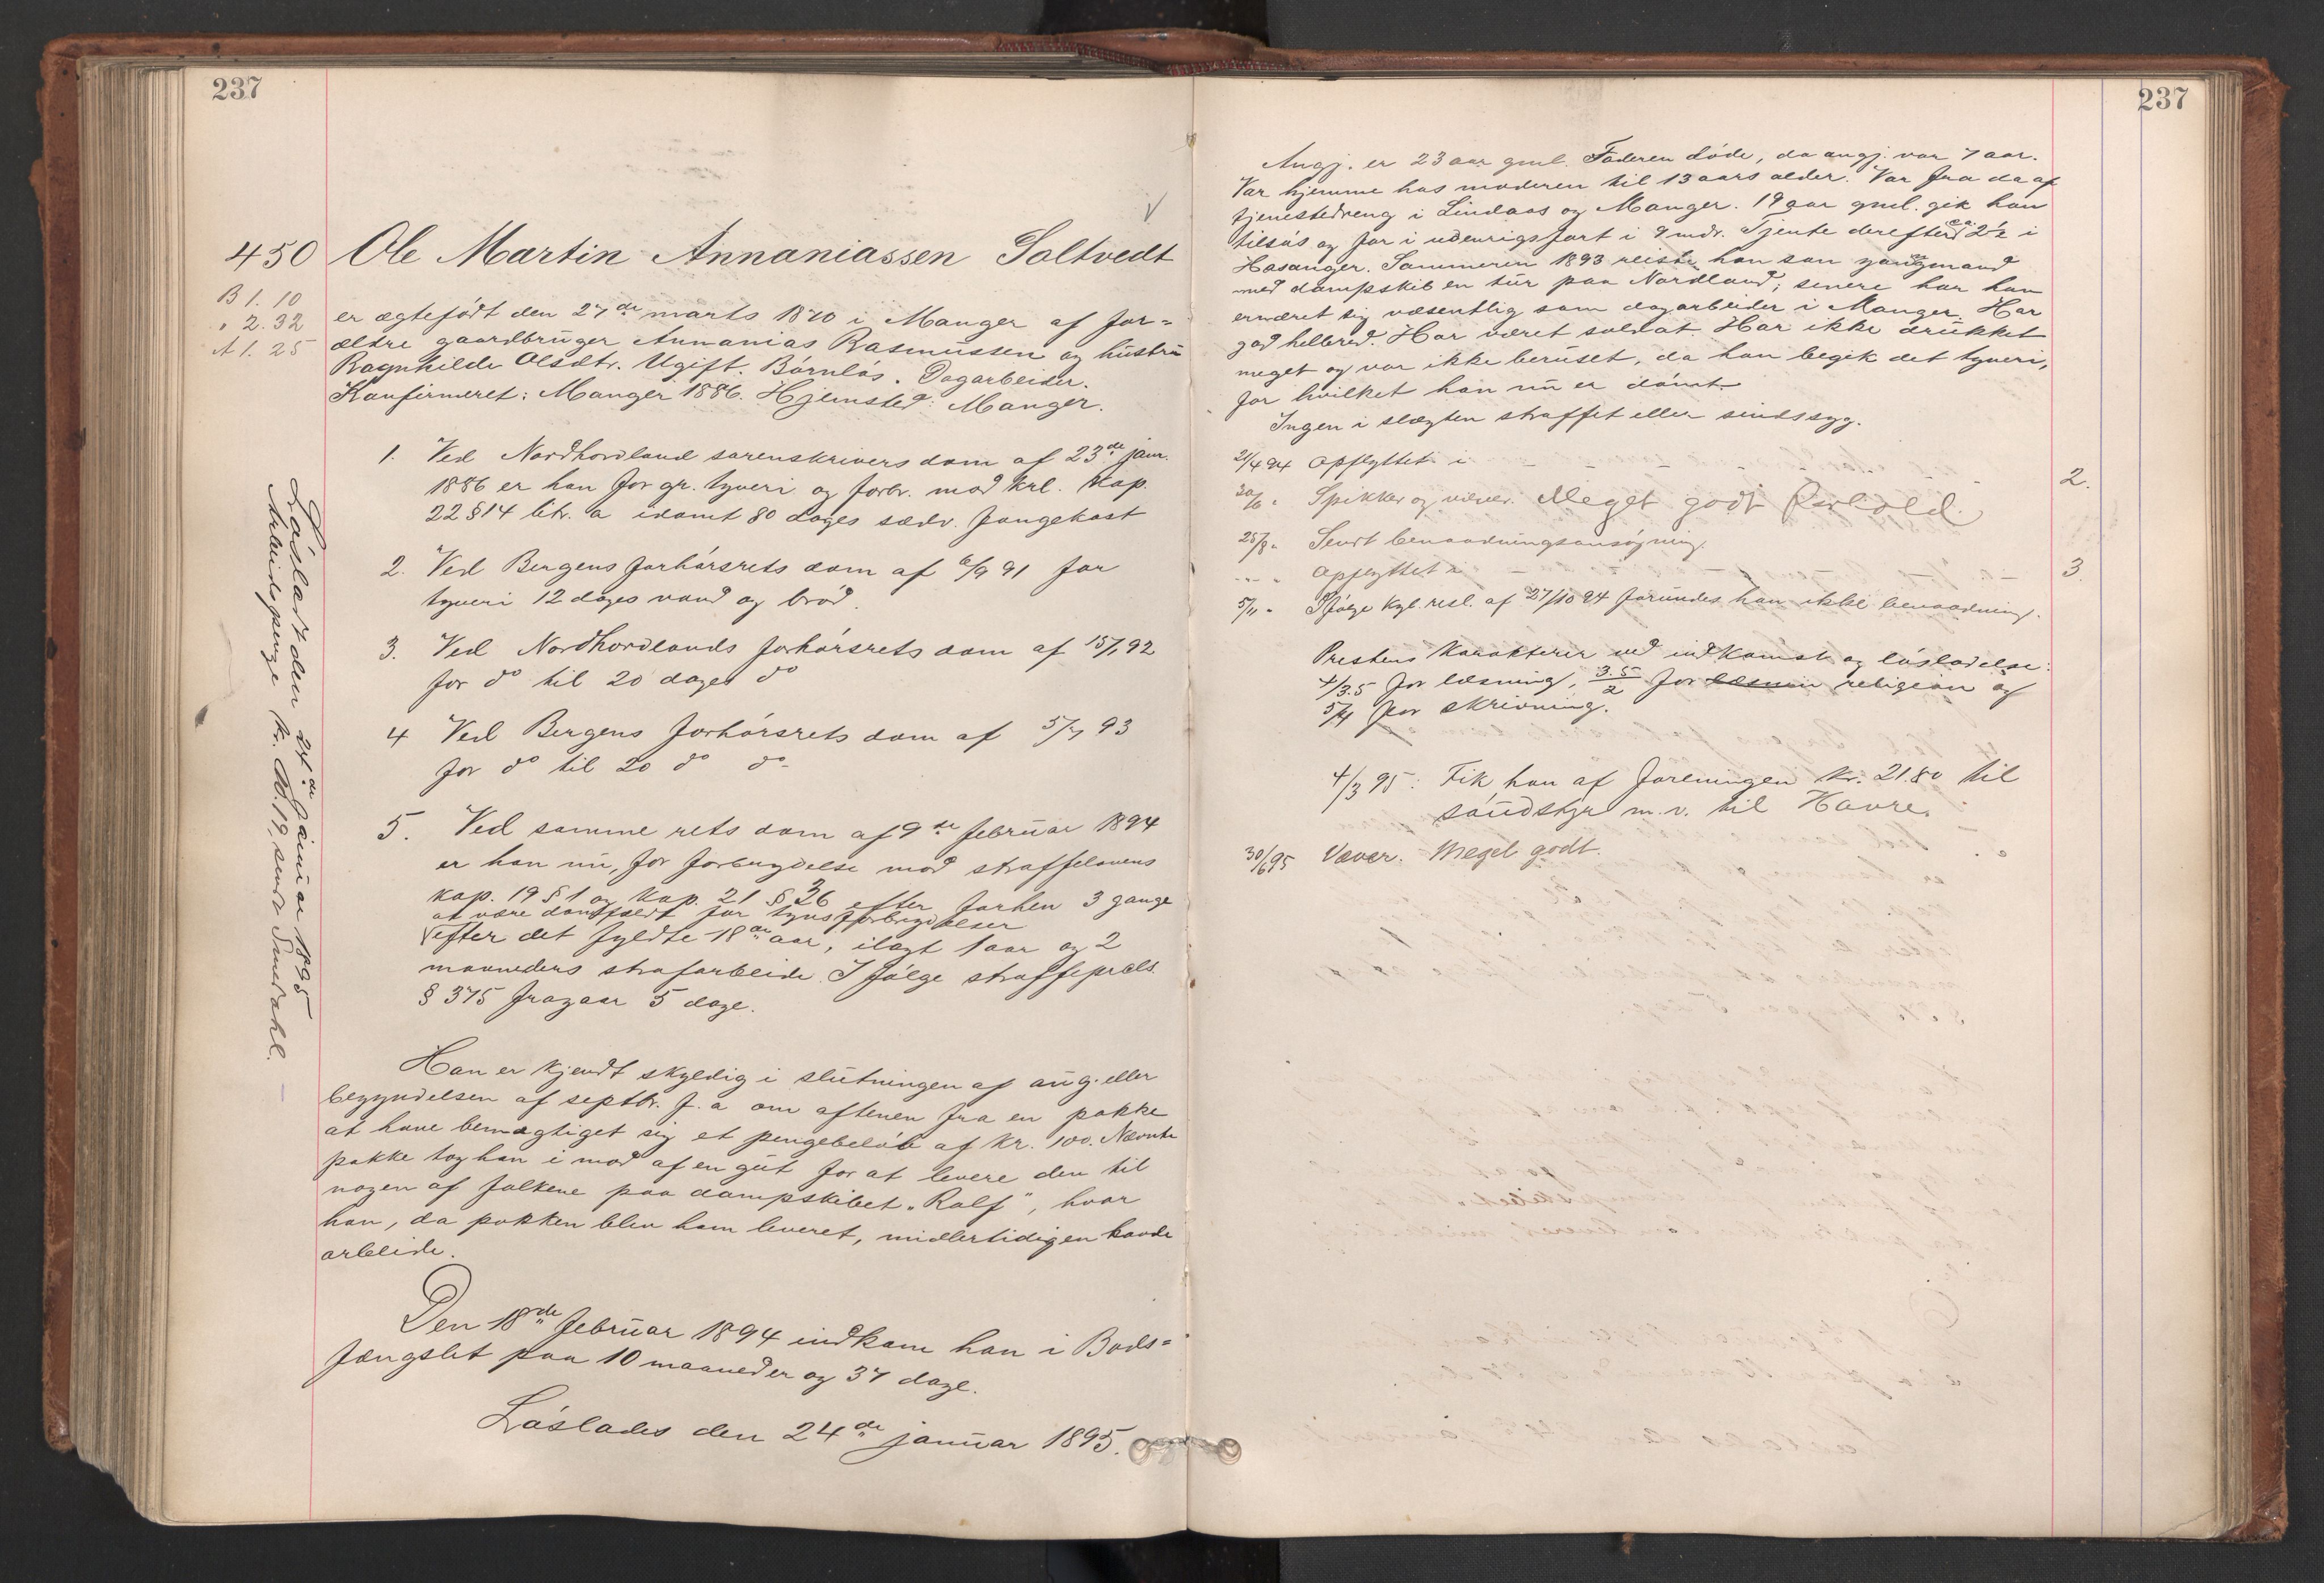 237
450 Ole Martin Annaniassen Soltvedt
B 1. 10
" 2. 32
A 1. 25
er ægtefødt den 27de marts 1870 i Manger af for=
ældre gaardbruger Annanias Rasmussen og hustru
Ragnhilde Olsdtr. Ugift. Børnløs. Dagarbeider.
Konfirmeret: Manger 1886. Hjemsted: Manger.
1. Ved Nordhordland sorenskrivers dom af 23de janr.
1886 er han for gr. tyveri og forbr. mod krl. Kap.
22 § 14 litr. a idømt 80 dages sædv. fangekost
2. Ved Bergens forhørsrets dom af 6/9 91 for
tyveri 12 dages vand og brød.
3. Ved Nordhordlands forhørsrets dom af 15/1 92
for do til 20 dages do
4 Ved Bergens forhørsrets dom af 5/7 93
for do til 20 do do
5. Ved samme rets dom af 9de februar 1894
er han nu, for forbrydelse mod straffelovens
kap. 19 § 1 og Kap. 21 § 36 efter forhen 3 gange
at være domfældt for tyvsforbrydelser
efter det fyldte 18de aar, ilagt 1 aar og 2
maaneders strafarbeide. Ifølge straffeprcls.
§ 375 fragaar 5 dage.
Han er kjendt skyldig i slutningen af aug. eller
begyndelsen af septbr. f. a om aftenen fra en pakke
at have bemægtiget sig et pengebeløb af kr. 100. Nævnte
pakke tog han i mod af en gut for at levere den til
nogen af folkene paa dampskibet "Ralf", hvor
han, da pakken blev ham leveret, midlertidigen havde
arbeide.
Den 18de februar 1894 indkom han i Bods=
fængslet paa 10 maaneder og 37 dage.
Løslades den 24de januar 1895.
Løsladt den 24de januar 1895
Arbeidspenge kr. 19, sendt Smedahl.
237
Angj. er 23 aar gml. Faderen døde, da angj. var 7 aar.
Var hjemme hos moderen til 13 aars alder. Var fra da af
tjenestedreng i Lindaas og Manger. 19 aar gml. gik han
tilsøs og for i udenrigsfart i 9 mdr. Tjente derefter ca. 2½ i
Hosanger. Sommeren 1893 reiste han som gangmand
med dampskib en tur paa Nordland; senere har han
ernæret sig væsentlig som dagarbeider i Manger. Har
god helbred. Har været soldat. Har ikke drukket
meget og var ikke beruset, da han begik det tyveri,
for hvilket han nu er dømt.
Ingen i slægten straffet eller sindssyg.
21/4 94 Opflyttet i 2.
30/6 " Spikker og væver. Meget godt Forhold.
25/8 " Sendt benaadningsansøgning.
" " Opflyttet i 3.
5/11 " Ifølge kgl. resl. af 27/10 94 forundes han ikke benaadning.
Prestens Karakterer ved indkomst og løsladelse:
4/3.5 for læsning, 3.5/2 for religion og
5/4 for skrivning.
4/3 95: Fik han af foreningen kr. 21.80 til
søudstyr m. v. til Havre.
30/6 95 Væver. Meget godt.